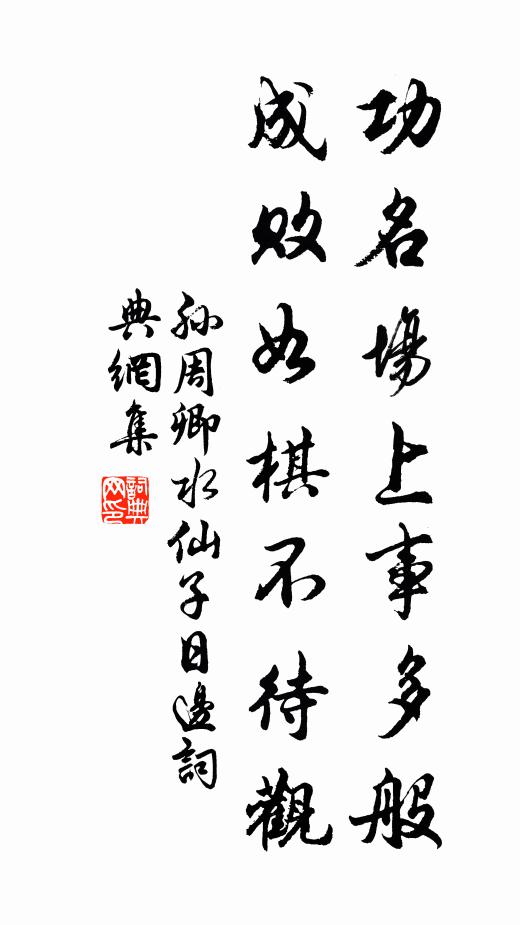 功名場上事多般
成敗如棋不待觀
孫周卿水仙子日邊詞
典網集
詞典網印